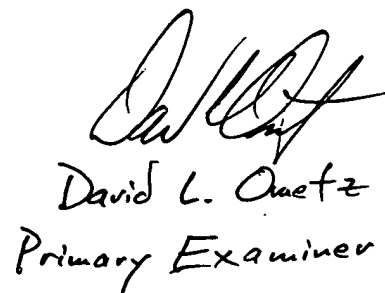 David L. Ometz
Primary Examiner